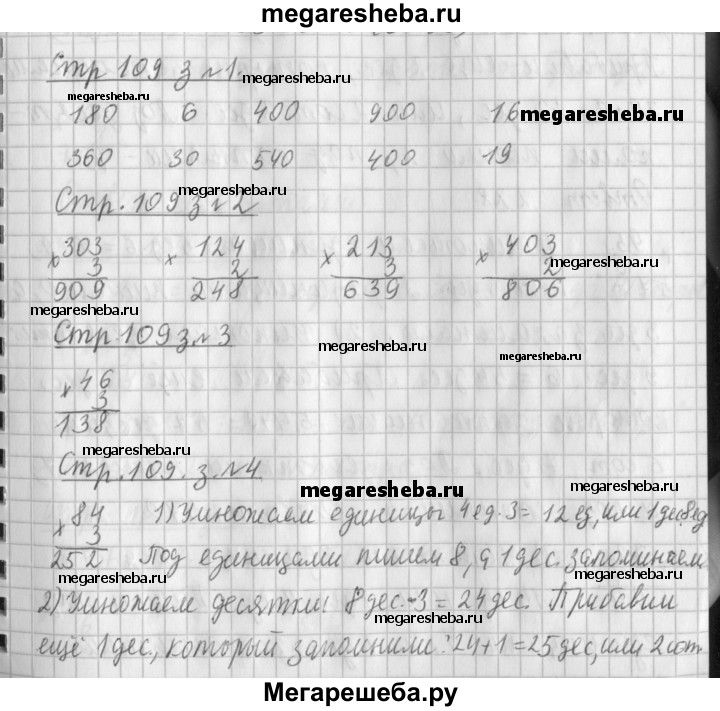 megaresheba.ru
Стр 109 з №1
megaresheba.ru
megaresheba.ru
180 6 400 900 16
megaresheba.ru
360 30 540 400 19
megaresheba.ru
Стр. 109 з №2
303 124 213 403
× 3 × 2 × 3 × 2
megaresheba.ru
909 248 639 806
megaresheba.ru
Стр. 109 з. №3
megaresheba.ru
megaresheba.ru
46
× 3
138
megaresheba.ru
Стр. 109. з. №4
megaresheba.ru
84 1) Умножаем единицы 4 ед. · 3 = 12 ед, или 1 дес 8 ед
× 3
252 Под единицами пишем 8, а 1 дес. запоминаем
megaresheba.ru
megaresheba.ru
2) Умножаем десятки: 8 дес. · 3 = 24 дес. Прибавим
megaresheba.ru
ещё 1 дес., который запомнили: 24+1=25 дес, или 2 сот
Мегарешеба.ру